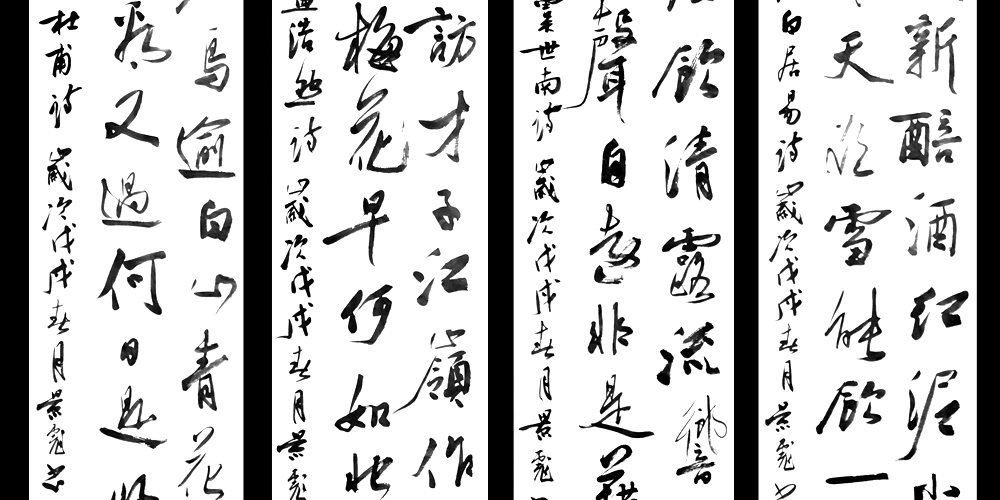 新醅酒红泥小
天欲雪能飲一
白居易詩歲次戊戌春月景彪
飲清露流響
聲自遠非是藉
世南詩歲次戊戌春月景彪
訪才子江嶺作
梅花早何如北
浩然詩歲次戊戌春月景彪
鳥逾白山青花
看又過何日是
杜甫詩歲次戊戌春月景彪书